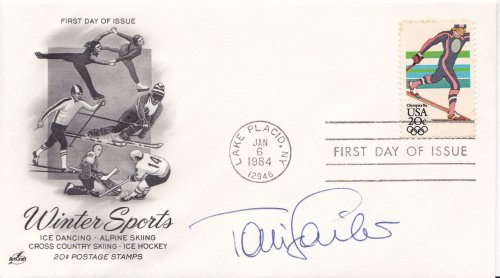 FIRST DAY OF ISSUE
Olympics 84
USA
20c
LAKE PLACID, NY
JAN
6
1984
12946
FIRST DAY OF ISSUE
14
Winter Sports
ICE DANCING · ALPINE SKIING
CROSS COUNTRY SKIING · ICE HOCKEY
20¢ POSTAGE STAMPS
ArtCraft
Toni Sailer